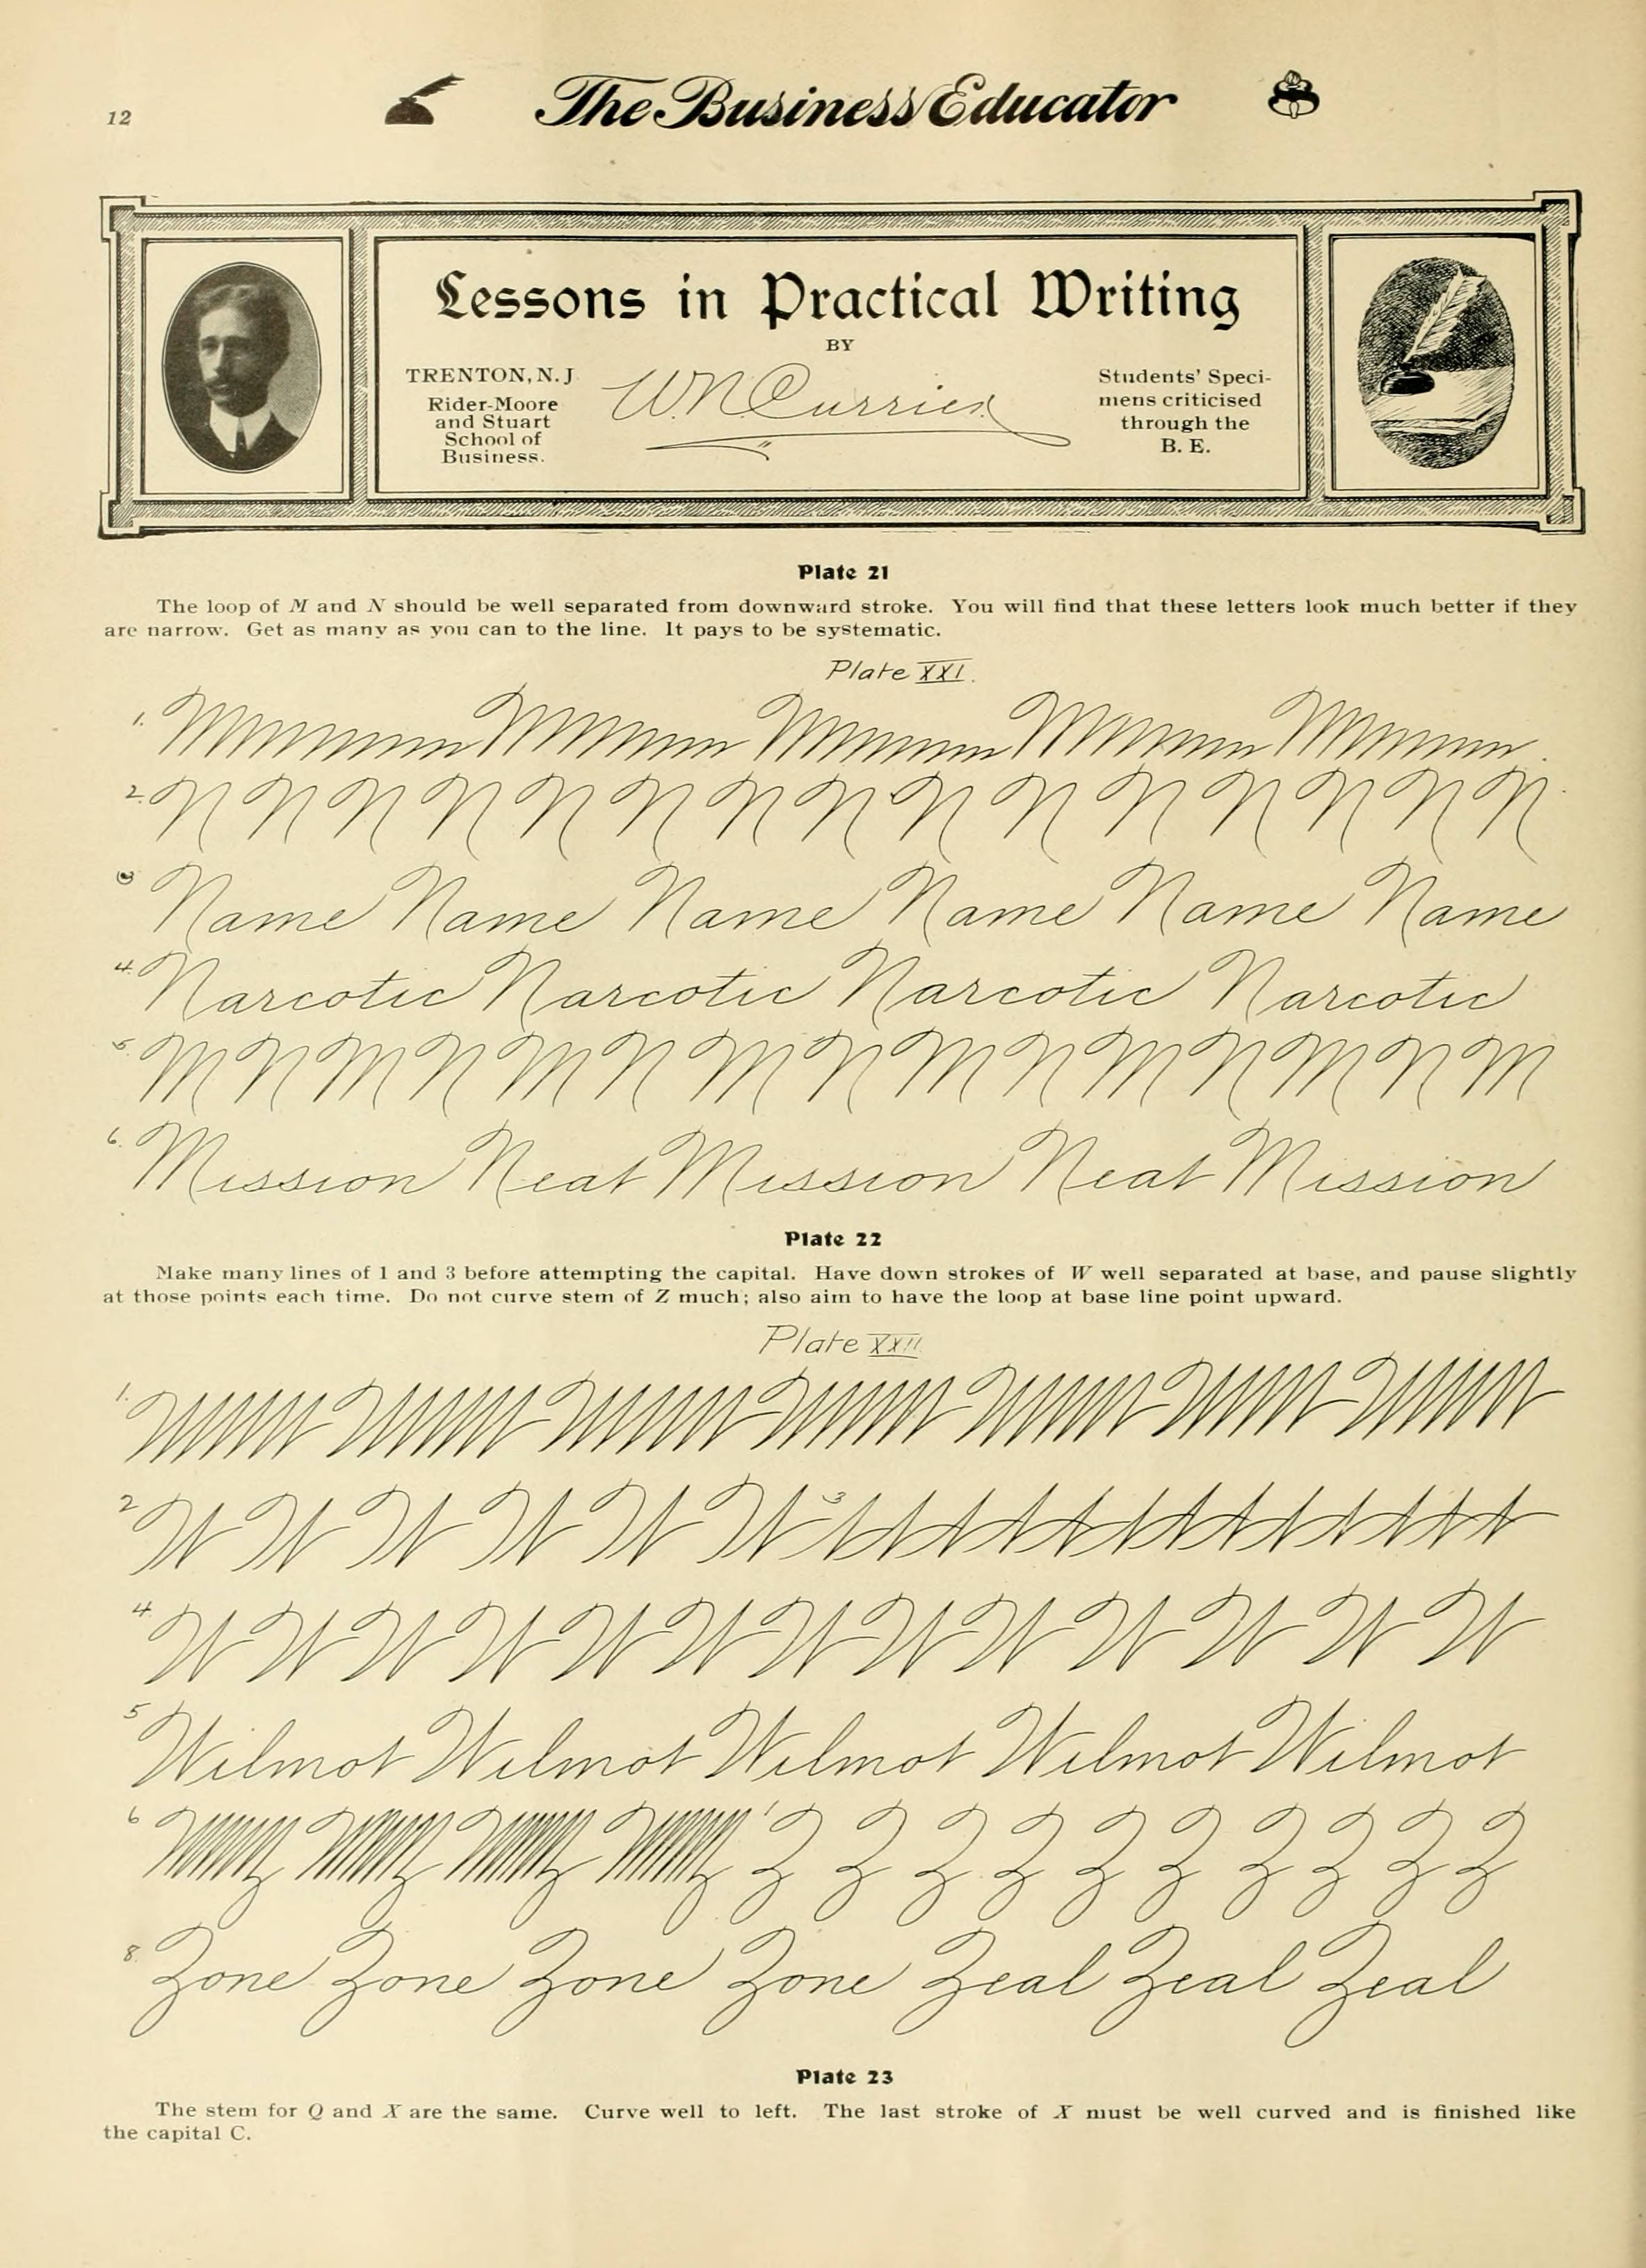 12
The Business Educator
Lessons in Practical Writing
BY
TRENTON, N. J.
Rider-Moore
and Stuart
School of
Business.
W. N. Currier
Students' Speci-
mens criticised
through the
B. E.
Plate 21
The loop of M and N should be well separated from downward stroke. You will find that these letters look much better if they
are narrow. Get as many as you can to the line. It pays to be systematic.
Plate XXI.
1.
2. N N N N N N N N N N N N N N N
3 Name Name Name Name Name Name
4. Narcotic Narcotic Narcotic Narcotic
5. M N M N M N M N M N M N M N M
6. Mission Neat Mission Neat Mission
Plate 22
Make many lines of 1 and 3 before attempting the capital. Have down strokes of W well separated at base, and pause slightly
at those points each time. Do not curve stem of Z much; also aim to have the loop at base line point upward.
Plate XXII
1.
2 W W W W W W 3
4. W W W W W W W W W W W W W
5 Wilmot Wilmot Wilmot Wilmot Wilmot
6 Z Z Z Z Z Z Z Z Z Z
8. Zone Zone Zone Zone Zeal Zeal Zeal
Plate 23
The stem for Q and X are the same. Curve well to left. The last stroke of X must be well curved and is finished like
the capital C.